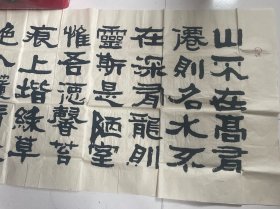 山不在高有
僊則名水不
在深有龍則
靈斯是陋室
惟吾德馨苔
痕上堦綠草
色入簾